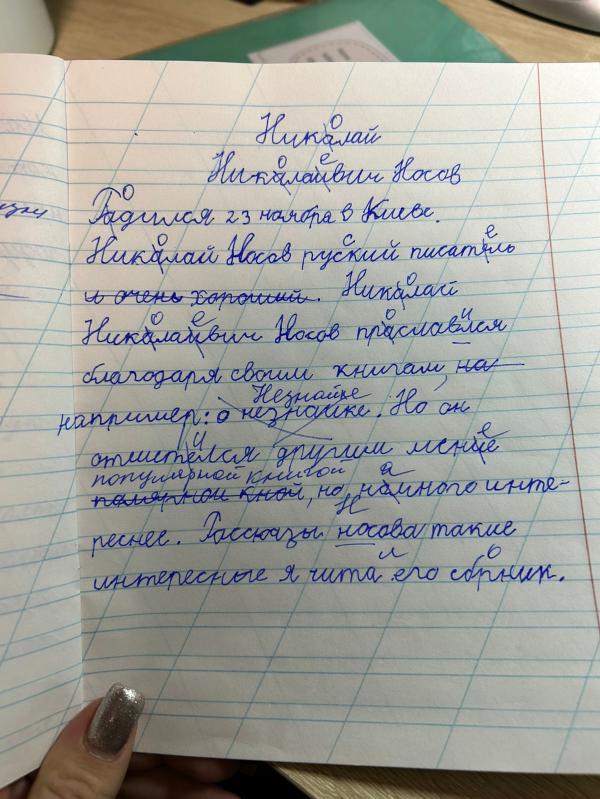 Николай
Николаевич Носов
Родился 23 ноября в Киеве.
Николай Носов русский писатель
и очень хороший. Николай
Николаевич Носов прославился
благодаря своим книгам, на
Незнайке
например: о незнайке. Но он
отличился другим менее
популярной книгой
полярной кной, но намного инте-
реснее. Рассказы Носова такие
интересные я читал его сборник.